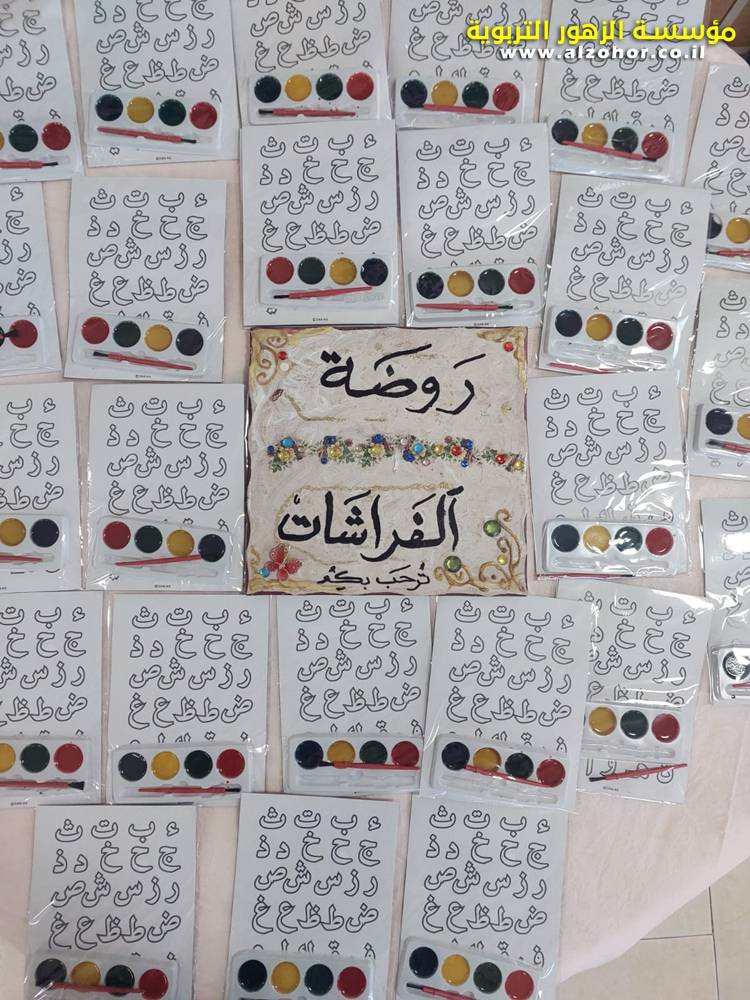 مؤسسة الزهور التربوية
www.alzohor.co.il
رَوضَة
الفَراشَات
تُرَحِّب بِكُم
ء ب ت ث
ج ح خ د ذ
ر ز س ش ص
ض ط ظ ع غ